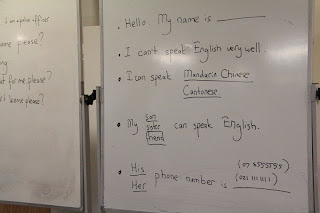 I am a police officer
name please?
for me, please?
please?
• Hello. My name is ________
• I can't speak English very well.
• I can speak Mandarin Chinese
Cantonese
• My son
sister
friend can speak English.
• His
Her phone number is
(07 5555555)
(021 111 111)